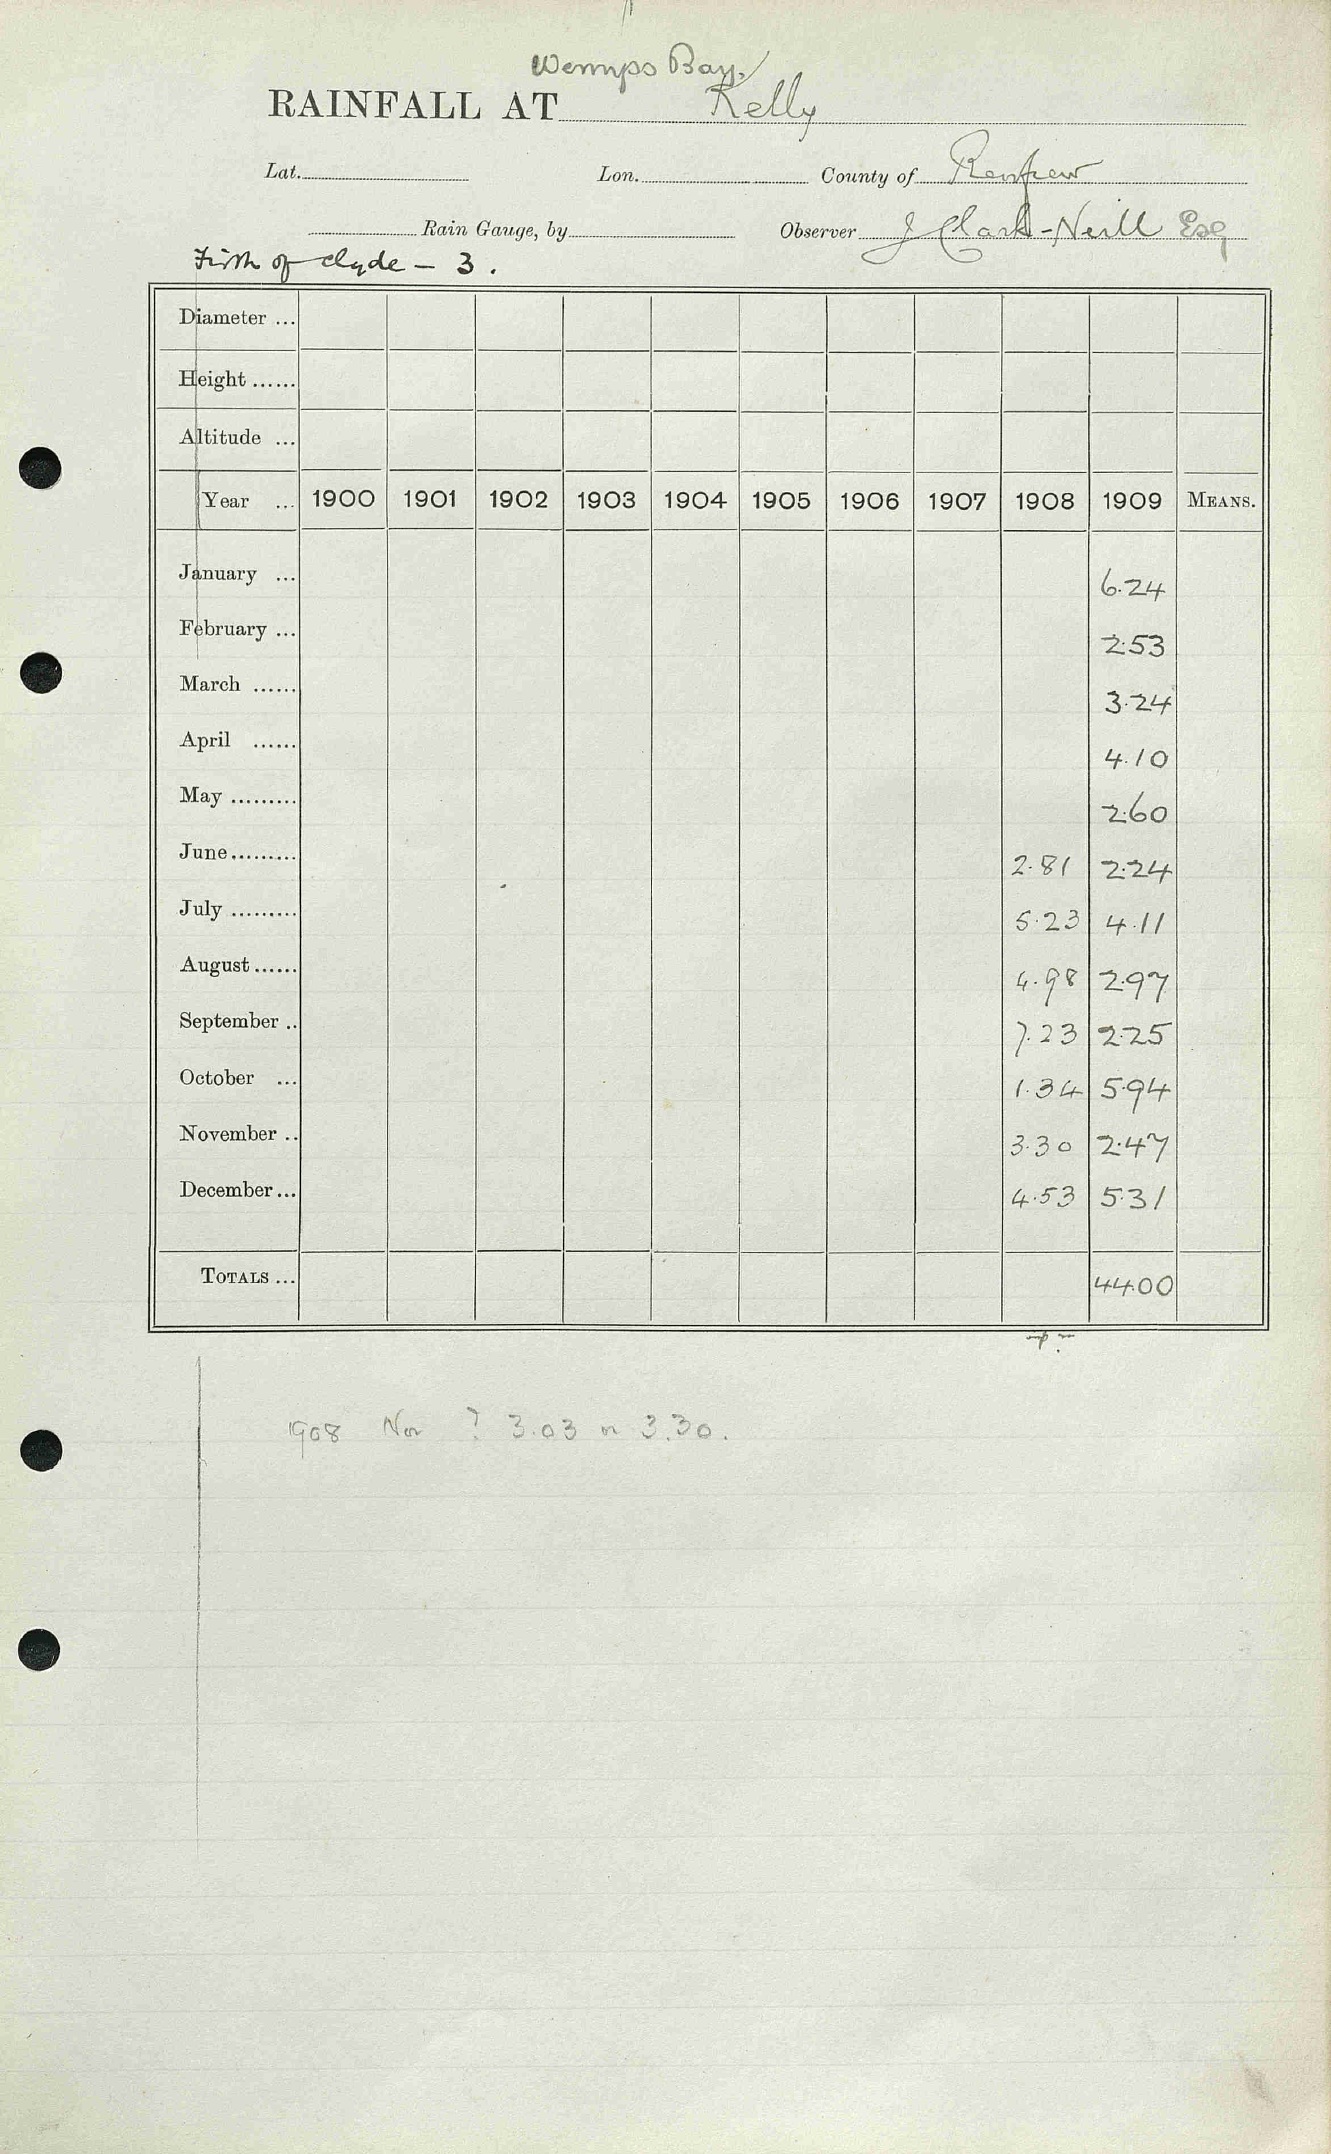 Wemyss Bay.
RAINFALL AT Kelly
Lat. Lon. County of Renfrew
Rain Gauge, by Observer J Clark-Neill Esq
Firth of Clyde – 3.
Diameter ...
Height ......
Altitude ...
Year ... 1900 1901 1902 1903 1904 1905 1906 1907 1908 1909 MEANS.
January ... 6.24
February ... 2.53
March ...... 3.24
April ...... 4.10
May ......... 2.60
June ......... 2.81 2.24
July ......... 5.23 4.11
August ...... 4.98 2.97
September .. 7.23 2.25
October ... 1.34 5.94
November .. 3.30 2.47
December ... 4.53 5.31
TOTALS ... 44.00
1908 Nov ? 3.03 or 3.30.